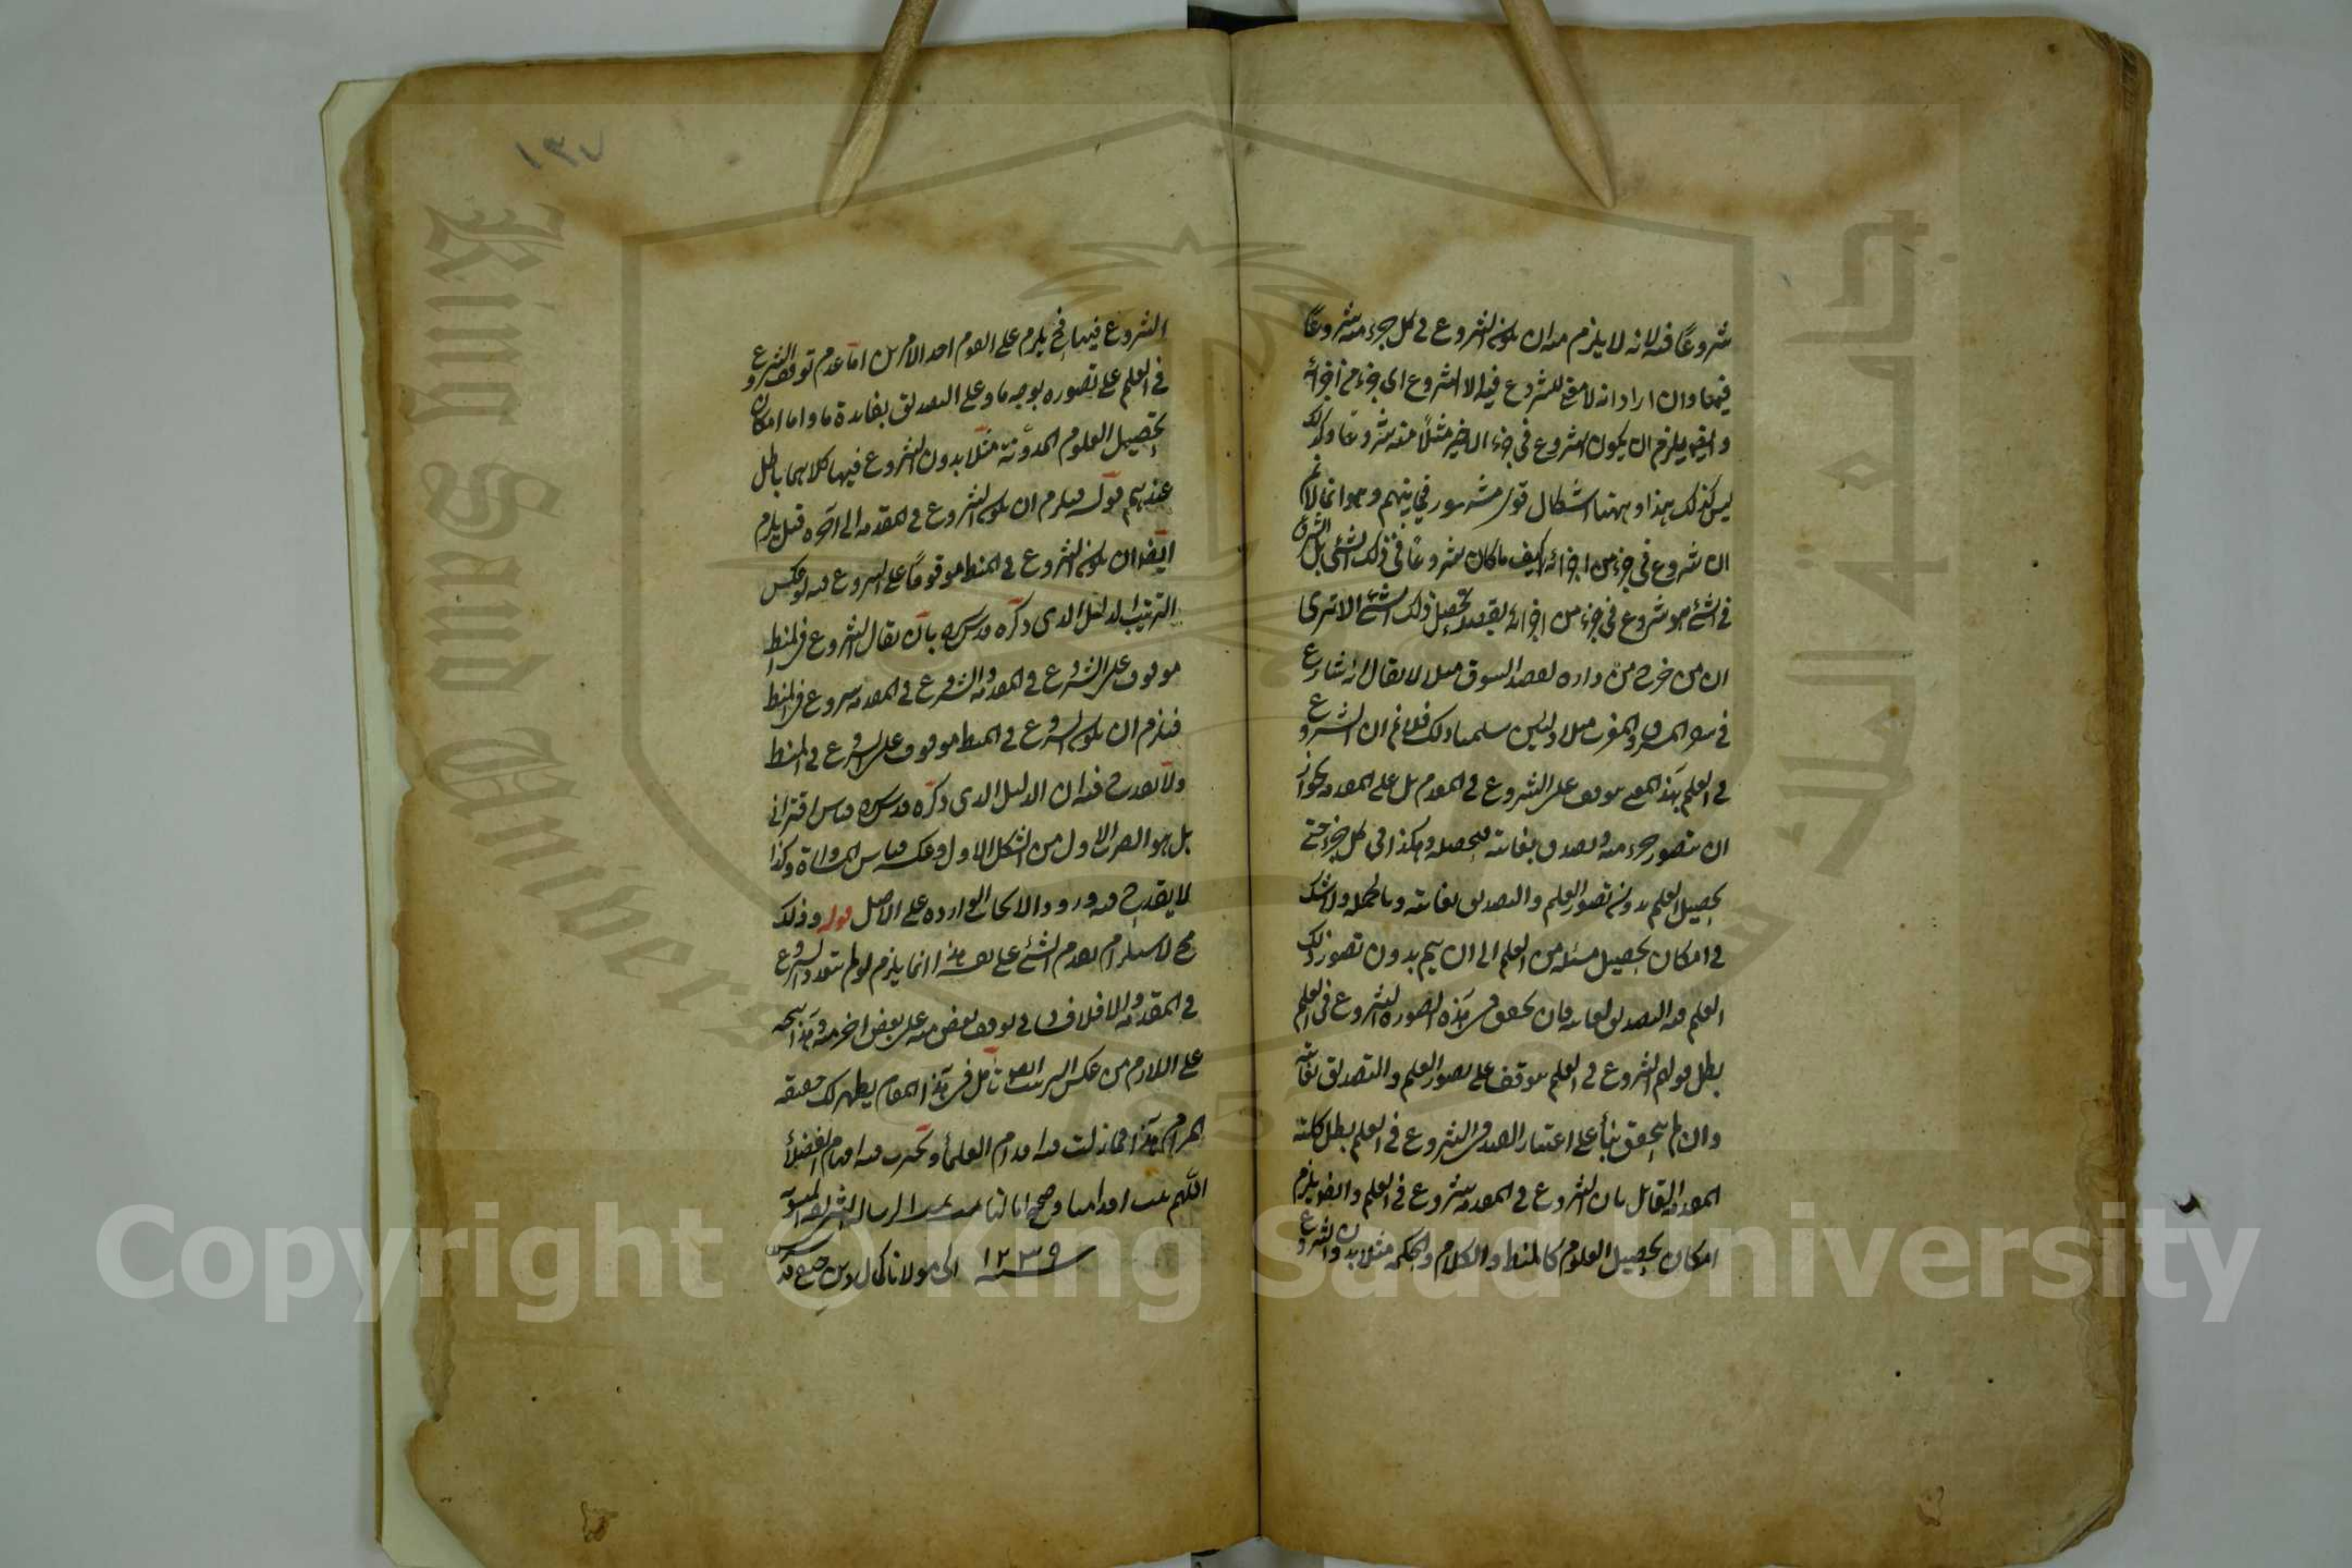 شروعًا فيه لانه لا يلزم منه ان يكون الشروع في كل جزء منه شروعًا
فيهما وان اراد انه لا معنى للشروع فيه الا الشروع اى جزء من اجزائه
فيلزم ان يكون الشروع في جزء الاخير مثلًا منه شروعًا وكذلك
ليس كذلك هذا وههنا اشكال قوى مشهور في بينهم وهو انا لا نم
ان شروع في جزء من اجزائه كيف ما كان شروعًا في ذلك الشئ بل الشروع
في الشئ هو شروع في جزء من اجزائه بقصد تحصيل ذلك الشئ الا ترى
ان من خرج من داره لقصد السوق مثلا لا يقال انه شارع
في سفر المشرق والمغرب مثلا ولئن سلمنا ذلك فلا نم ان الشروع
في العلم بهذا المعنى موقوف على الشروع في المقدم بل على المقدمة لجواز
ان يتصور جزء منه ويصدق بغايته فيحصله وهكذا في كل جزء حتى
يحصيل العلم بدون تصور العلم والتصديق بغايته وبالجملة ولا شك
في امكان تحصيل مسئلة من العلم الى ان يتم بدون تصور ذلك
العلم والتصديق بغايته فان تحقق في هذه الصورة الشروع في العلم
بطل قولهم الشروع في العلم موقف على تصور العلم والتصديق بغايته
وان لم يتحقق بناء على اعتبار القصد في الشروع في العلم بطل كلية
المقدمة القائل بان الشروع في المقدمة شروع في العلم وايضا يلزم
امكان تحصيل العلوم كالمنطق والكلام والحكمة مثلا بدون الشروع
١٣٧
الشروع فيها فح يلزم على القوم احد الامرين اما عدم توقف الشروع
في العلم على تصوره بوجه ما وعلى التصديق بفايدة ما واما امكان
تحصيل العلوم المدونة مثلا بدون الشروع فيها كلاهما باطل
عندهم قوله فيلزم ان يكون الشروع في المقدمة الى آخره قيل يلزم
ايضا ان يكون الشروع في المنطق موقوفًا على الشروع فيه لو عكس
الترتيب الدليل الذى ذكره قدس سره بان يقال الشروع في المنطق
موقوف على الشروع في المقدمة والشروع في المقدمة شروع في المنطق
فيلزم ان يكون الشروع في المنطق موقوف على الشروع في المنطق
ولا يقدح فيه ان الدليل الذى ذكره قدس سره قياس اقترانى
بل هو الضرب الاول من الشكل الاول وعكسه قياس المساواة وكذا
لا يقدح فيه ورود الابحاث الواردة على الاصل قوله وذلك
مح لاستلزام تقدم الشئ على نفسه هذا انما يلزم لو لم يتعدد الشروع
في المقدمة والا فلا فساد في توقف بعض منه على بعض اخر منه وهذا يتجه
على اللازم من عكس الترتيب ايضا تأمل في هذا المقام يظهر لك حقيقة
المرام هذا مما زلت فيه اقدام العلماء وتحيرت فيه افهام الفضلاء
اللهم ثبت اقدامنا وصحح امالنا تمت هذه الرسالة الشريفة المنسوبة
الى مولانا كمال الدين قدس سره سنة ١٢٣٩
Copyright © King Saud University
King Saud University
جامعة الملك سعود
1957